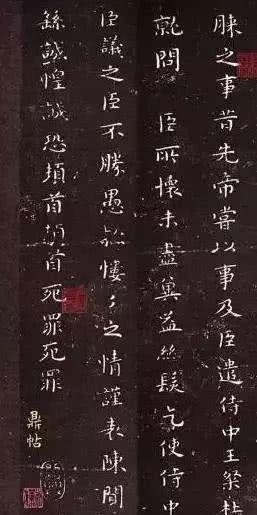 之事昔先帝嘗以事及臣遣侍中王粲杜
就問 臣所懷未盡奚益絲髮乞使侍中
臣議之臣不勝愚款慺々之情謹表陳聞
繇誠惶誠恐頓首頓首死罪死罪
鼎帖